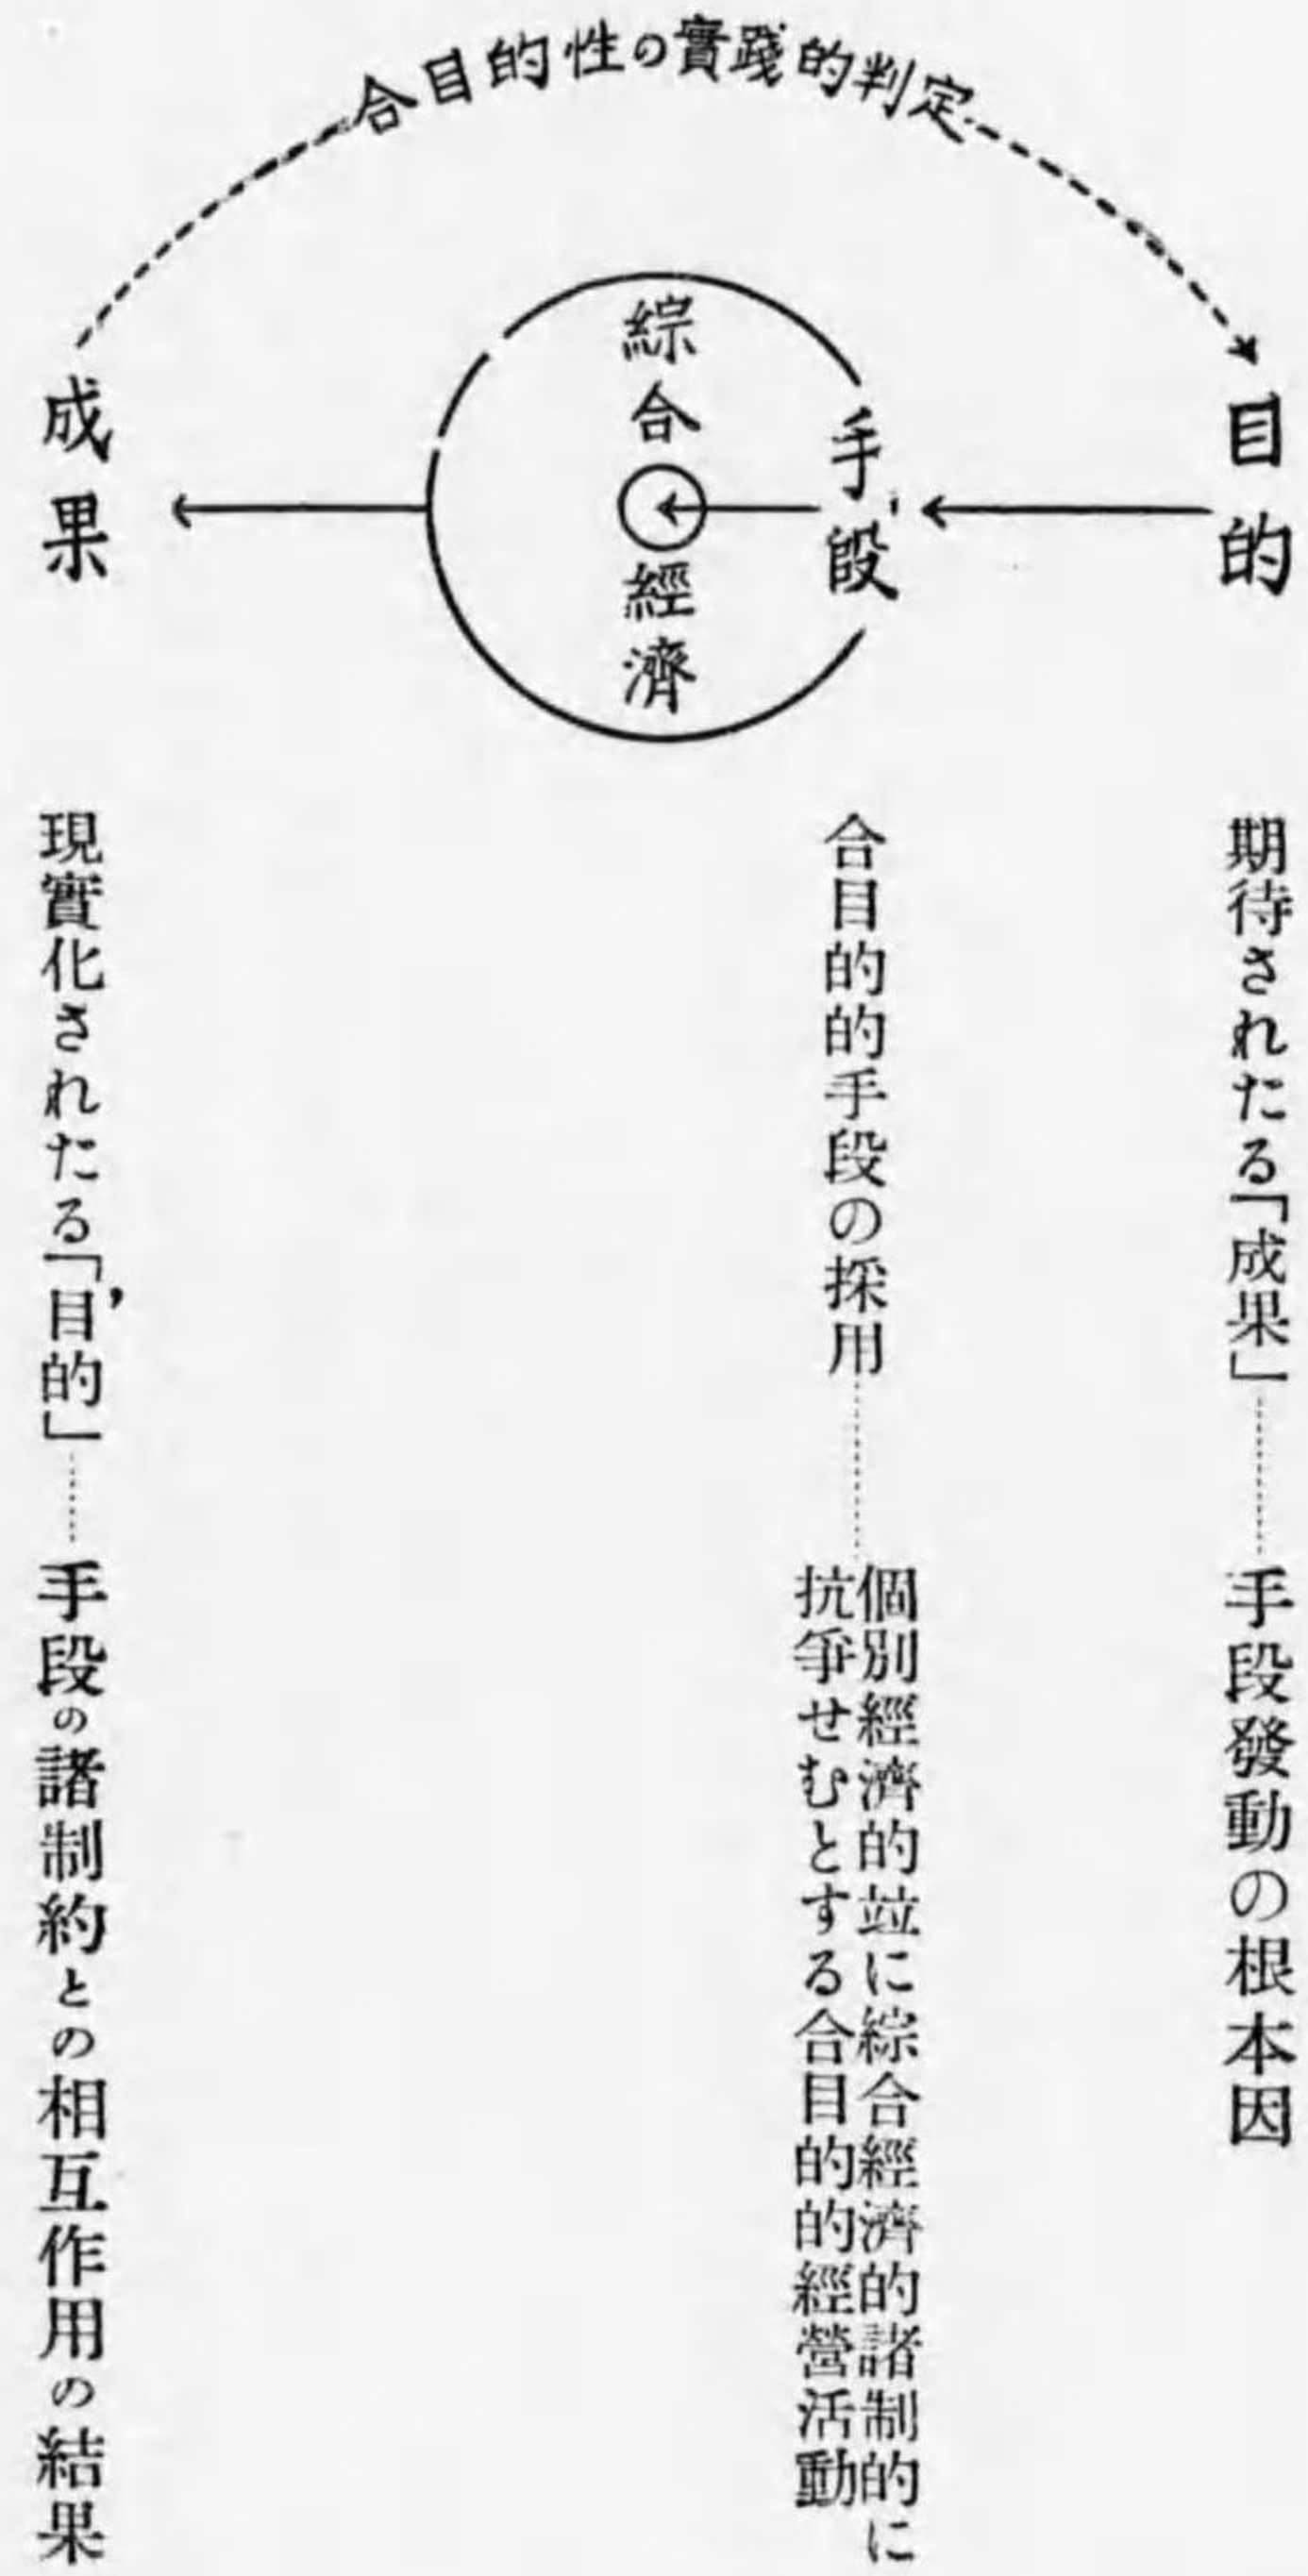 合目的性の實踐的判定
目的
手段
綜合經濟
成果
期待されたる「成果」………手段發動の根本因
合目的的手段の採用………
個別經濟的竝に綜合經濟的諸制的に
抗爭せむとする合目的的經營活動
現實化されたる「目的」………手段の諸制約との相互作用の結果